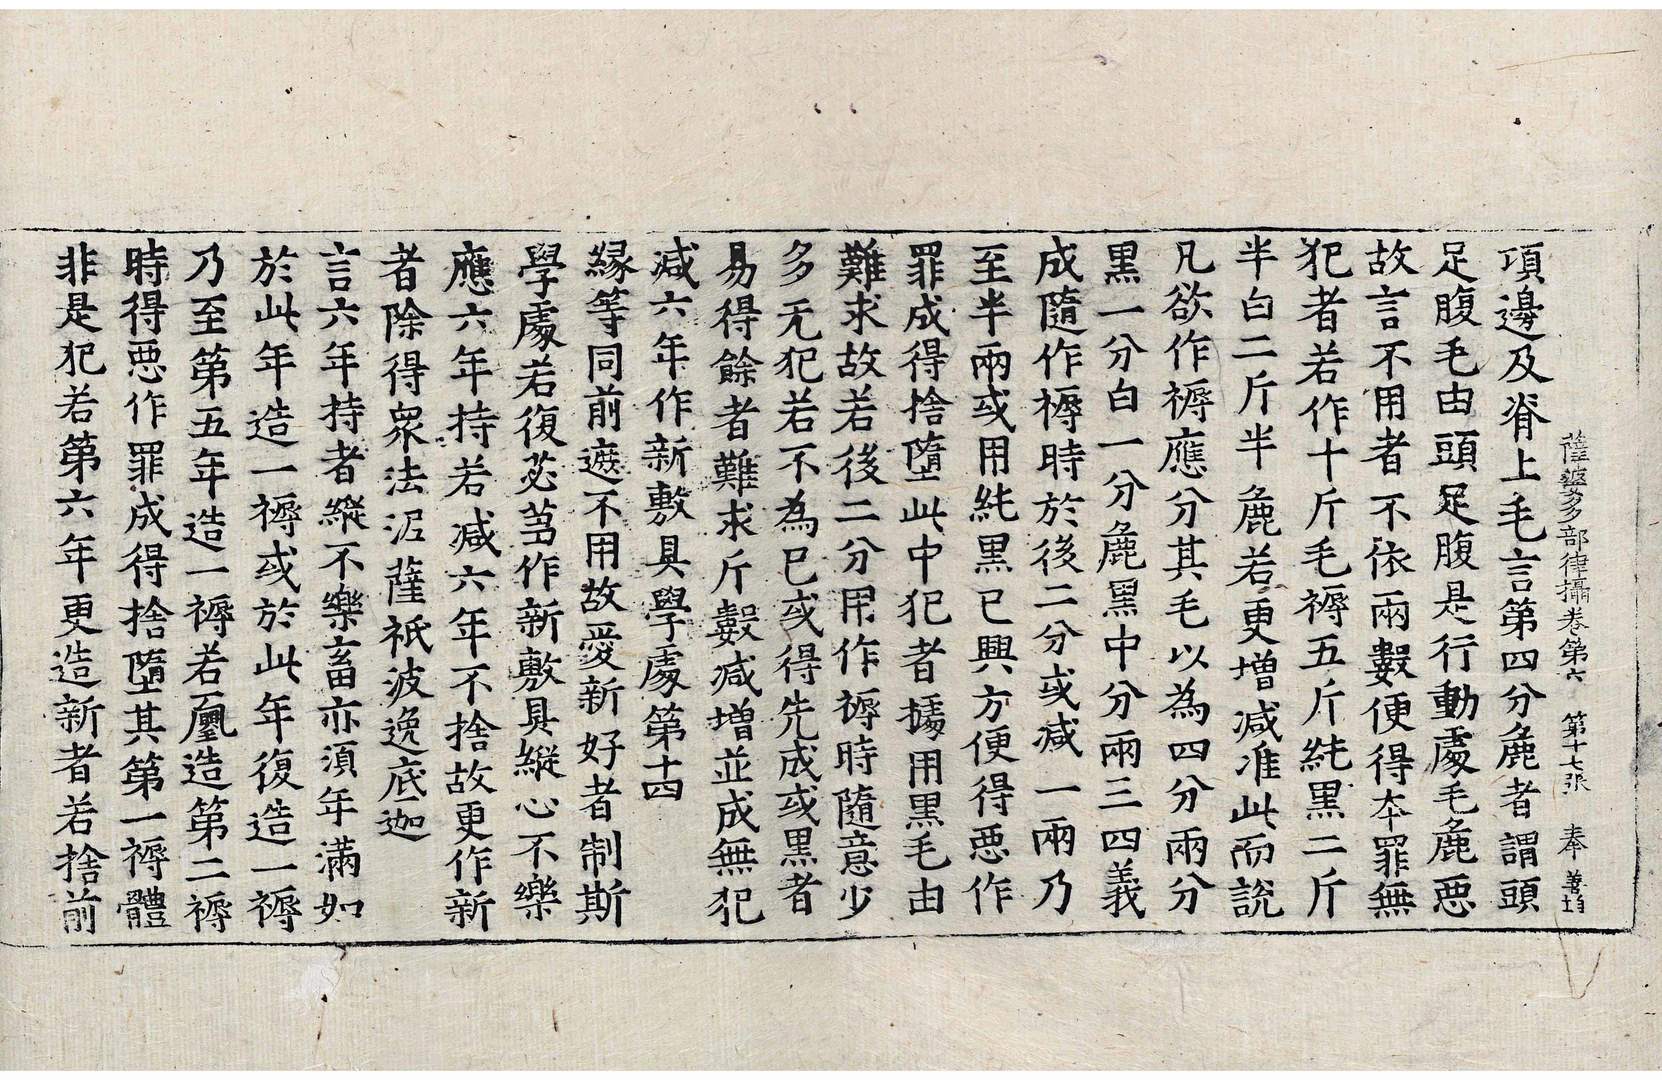 薩婆多部律攝卷第六　第十七張　奉
項邊及脊上毛言第四分麁者謂頭
足腹毛由頭足腹是行動處毛麁惡
故言不用者不依兩數便得本罪無
犯者若作十斤毛褥五斤純黑二斤
半白二斤半麁若更增減准此而說
凡欲作褥應分其毛以為四分兩分
黑一分白一分麁黑中分兩三四義
成隨作褥時於後二分或減一兩乃
至半兩或用純黑已興方便得惡作
罪成得捨墮此中犯者據用黑毛由
難求故若後二分用作褥時隨意少
多无犯若不為已或得先成或黑者
易得餘者難求斤數減增並成無犯
減六年作新敷具學處第十四
緣等同前遮不用故愛新好者制斯
學處若復苾芻作新敷具縱心不樂
應六年持若減六年不捨故更作新
者除得衆法泥薩祇波逸底迦
言六年持者縱不樂畜亦湏年滿如
於此年造一褥或於此年復造一褥
乃至第五年造一褥若𢊍造第二褥
時得惡作罪成得捨墮其第一褥體
非是犯若第六年更造新者若捨前